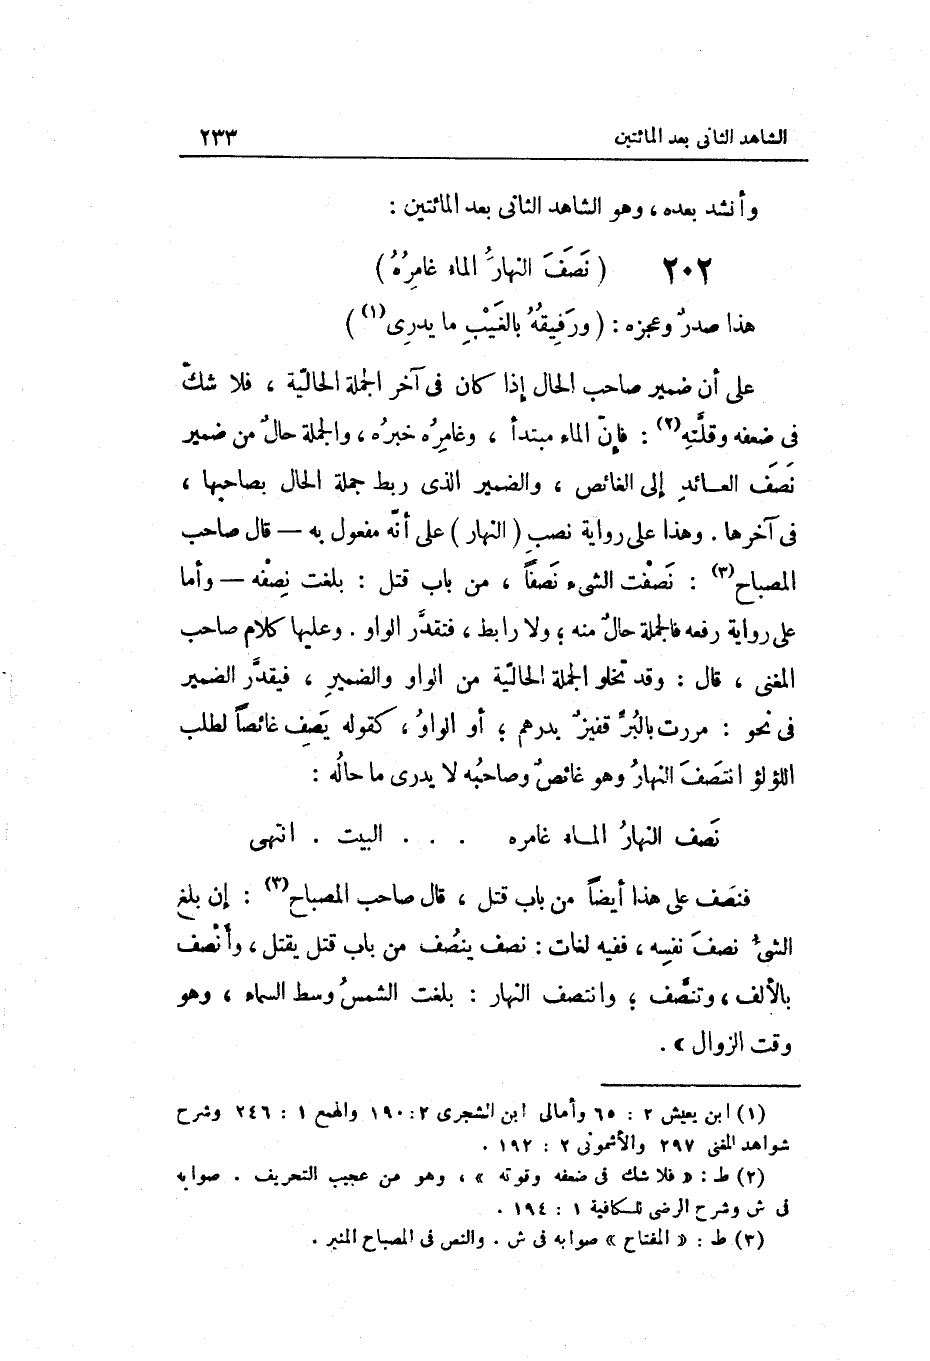 الشاهد الثانى بعد المائتين ٢٣٣
وأنشد بعده ، وهو الشاهد الثانى بعد المائتين :
٢٠٢ ( نَصَفَ النهارَُ الماء غامِرُهُ )
هذا صدرٌ وعجزه : ( ورَفِيقُهُ بالغَيْبِ ما يدرِى(١) )
على أن ضمير صاحب الحال إذا كان فى آخر الجملة الحاليّة ، فلا شكّ
فى ضعفه وقلَّتِه(٢) : فإنّ الماء مبتدأ ، وغامِرُه خبرُه ، والجملة حالٌ من ضمير
نَصَفَ العائدِ إلى الغائص ، والضمير الذى ربط جملة الحال بصاحبها ،
فى آخرها . وهذا على رواية نصبِ ( النهار ) على أنّه مفعول به — قال صاحب
المصباح(٣) : نَصَفْت الشىء نَصْفاً ، من باب قتل : بلغت نِصْفه — وأما
على رواية رفعه فالجملة حالٌ منه ؛ ولا رابط ، فتقدَّر الواو . وعليها كلام صاحب
المغنى ، قال : وقد تخلو الجملة الحاليّة من الواو والضميرِ ، فيقدَّر الضمير
فى نحو : مررت بالبُرِّ قفيزٌ بدرهم ؛ أو الواوُ ، كقوله يَصِف غائصاً لطلب
اللؤلؤ انتَصَفَ النهارُ وهو غائصٌ وصاحبُه لا يدرى ما حالُه :
نَصَف النهارُ الماء غامره . . . البيت . انتهى
فنصَف على هذا أيضاً من باب قتل ، قال صاحب المصباح(٣) : إن بلغ
الشىءُ نصفَ نفسِه ، ففيه لغات : نصف ينصُف من باب قتل يقتل ، وأنْصف
بالألف ، وتنصَّف ؛ وانتصف النهار : بلغت الشمسُ وسط السماء ، وهو
وقت الزوال » .
(١) ابن يعيش ٢ : ٦٥ وأمالى ابن الشجرى ٢ : ١٩٠ والهمع ١ : ٢٤٦ وشرح
شواهد المغنى ٢٩٧ والأشمونى ٢ : ١٩٢ .
(٢) ط : « فلا شك فى ضعفه وقوته » ، وهو من عجيب التحريف . صوابه
فى ش وشرح الرضى للكافية ١ : ١٩٤ .
(٣) ط : « المفتاح » صوابه فى ش . والنص فى المصباح المنير .